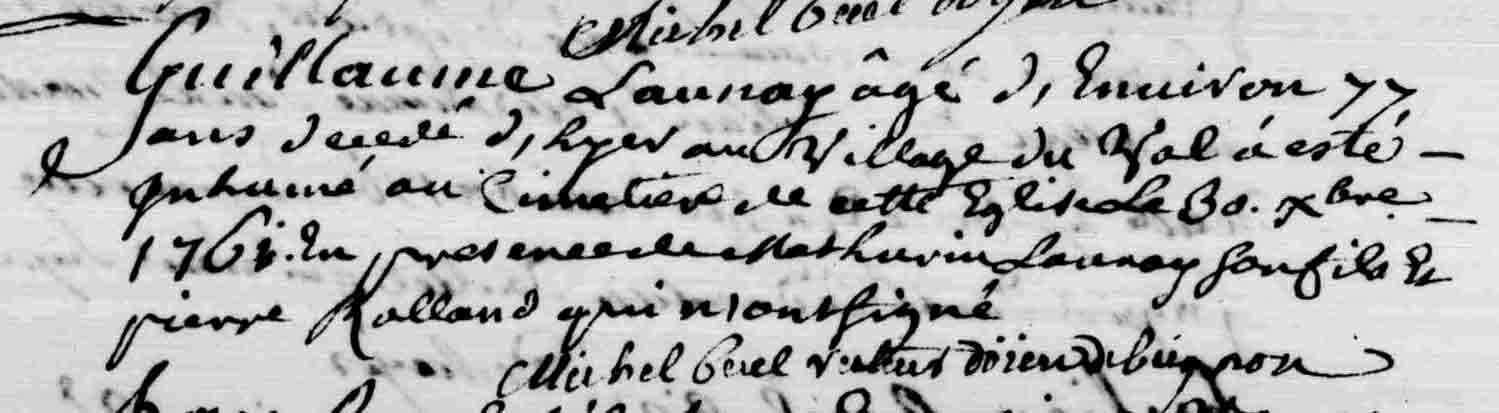 Michel
Guillaume Launay âgé d, Enuiron 77
ans decedé d, hyer au Village du Val á esté
ynhumé au Cimetiere de cette Eglise Le 30. xbre
176 . En presence de Mathurin Launay son fils Et
pierre Rolland qui n, ont signé
Michel doïen